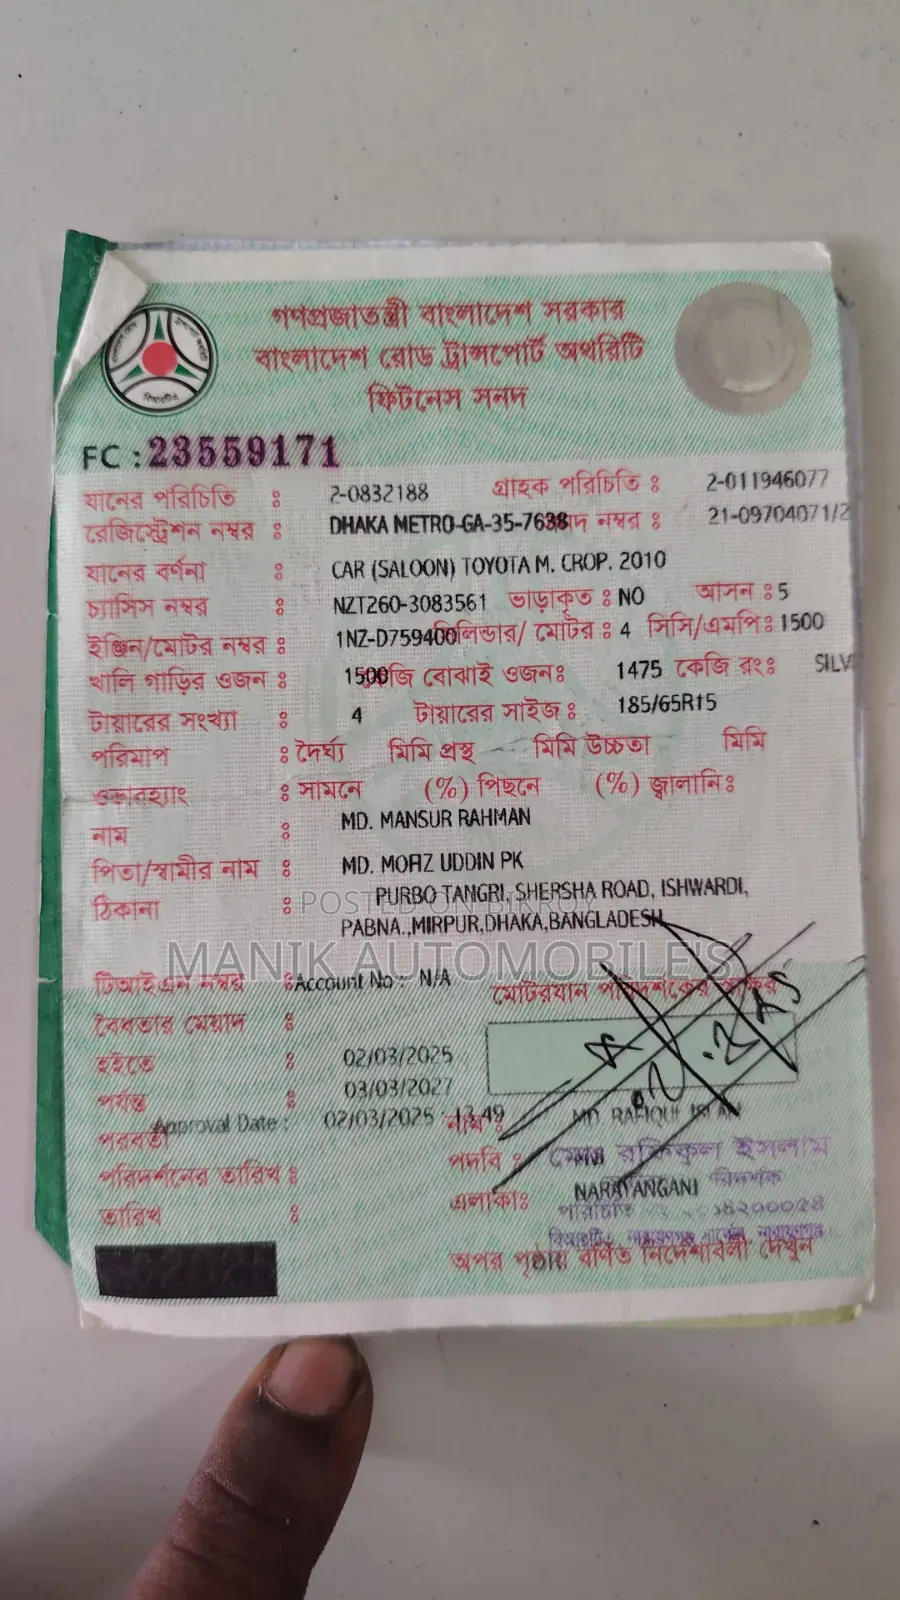 গণপ্রজাতন্ত্রী বাংলাদেশ সরকার
বাংলাদেশ রোড ট্রান্সপোর্ট অথরিটি
ফিটনেস সনদ
FC : 23559171
যানের পরিচিতি : 2-0832188 গ্রাহক পরিচিতি : 2-011946077
রেজিস্ট্রেশন নম্বর : DHAKA METRO-GA-35-7638 নম্বর : 21-09704071/2
যানের বর্ণনা : CAR (SALOON) TOYOTA M. CROP. 2010
চ্যাসিস নম্বর : NZT260-3083561 ভাড়াকৃত : NO আসন : 5
ইঞ্জিন/মোটর নম্বর : 1NZ-D759400 সিলিন্ডার/ মোটর : 4 সিসি/এমপি: 1500
খালি গাড়ির ওজন : 1500 কেজি বোঝাই ওজন: 1475 কেজি রং: SILV
টায়ারের সংখ্যা : 4 টায়ারের সাইজ : 185/65R15
পরিমাপ : দৈর্ঘ্য মিমি প্রস্থ মিমি উচ্চতা মিমি
ওভারহ্যাং : সামনে (%) পিছনে (%) জ্বালানি:
নাম : MD. MANSUR RAHMAN
পিতা/স্বামীর নাম : MD. MOFIZ UDDIN PK
ঠিকানা : PURBO TANGRI, SHERSHA ROAD, ISHWARDI,
PABNA.,MIRPUR,DHAKA,BANGLADESH
POSTED ON BIKROY
MANIK AUTOMOBILE'S
টিআইএন নম্বর : Account No : N/A মোটরযান পরিদর্শকের স্বাক্ষর
বৈধতার মেয়াদ :
হইতে : 02/03/2025
পর্যন্ত : 03/03/2027
Approval Date : 02/03/2025 13:49 নাম : MD. RAFIQUL ISLAM
পরবর্তী
পরিদর্শনের তারিখ : পদবি : মোঃ রফিকুল ইসলাম
এলাকা: NARAYANGANJ পরিদর্শক
তারিখ : পরিচিতি
অপর পৃষ্ঠায় বর্ণিত নির্দেশাবলী দেখুন